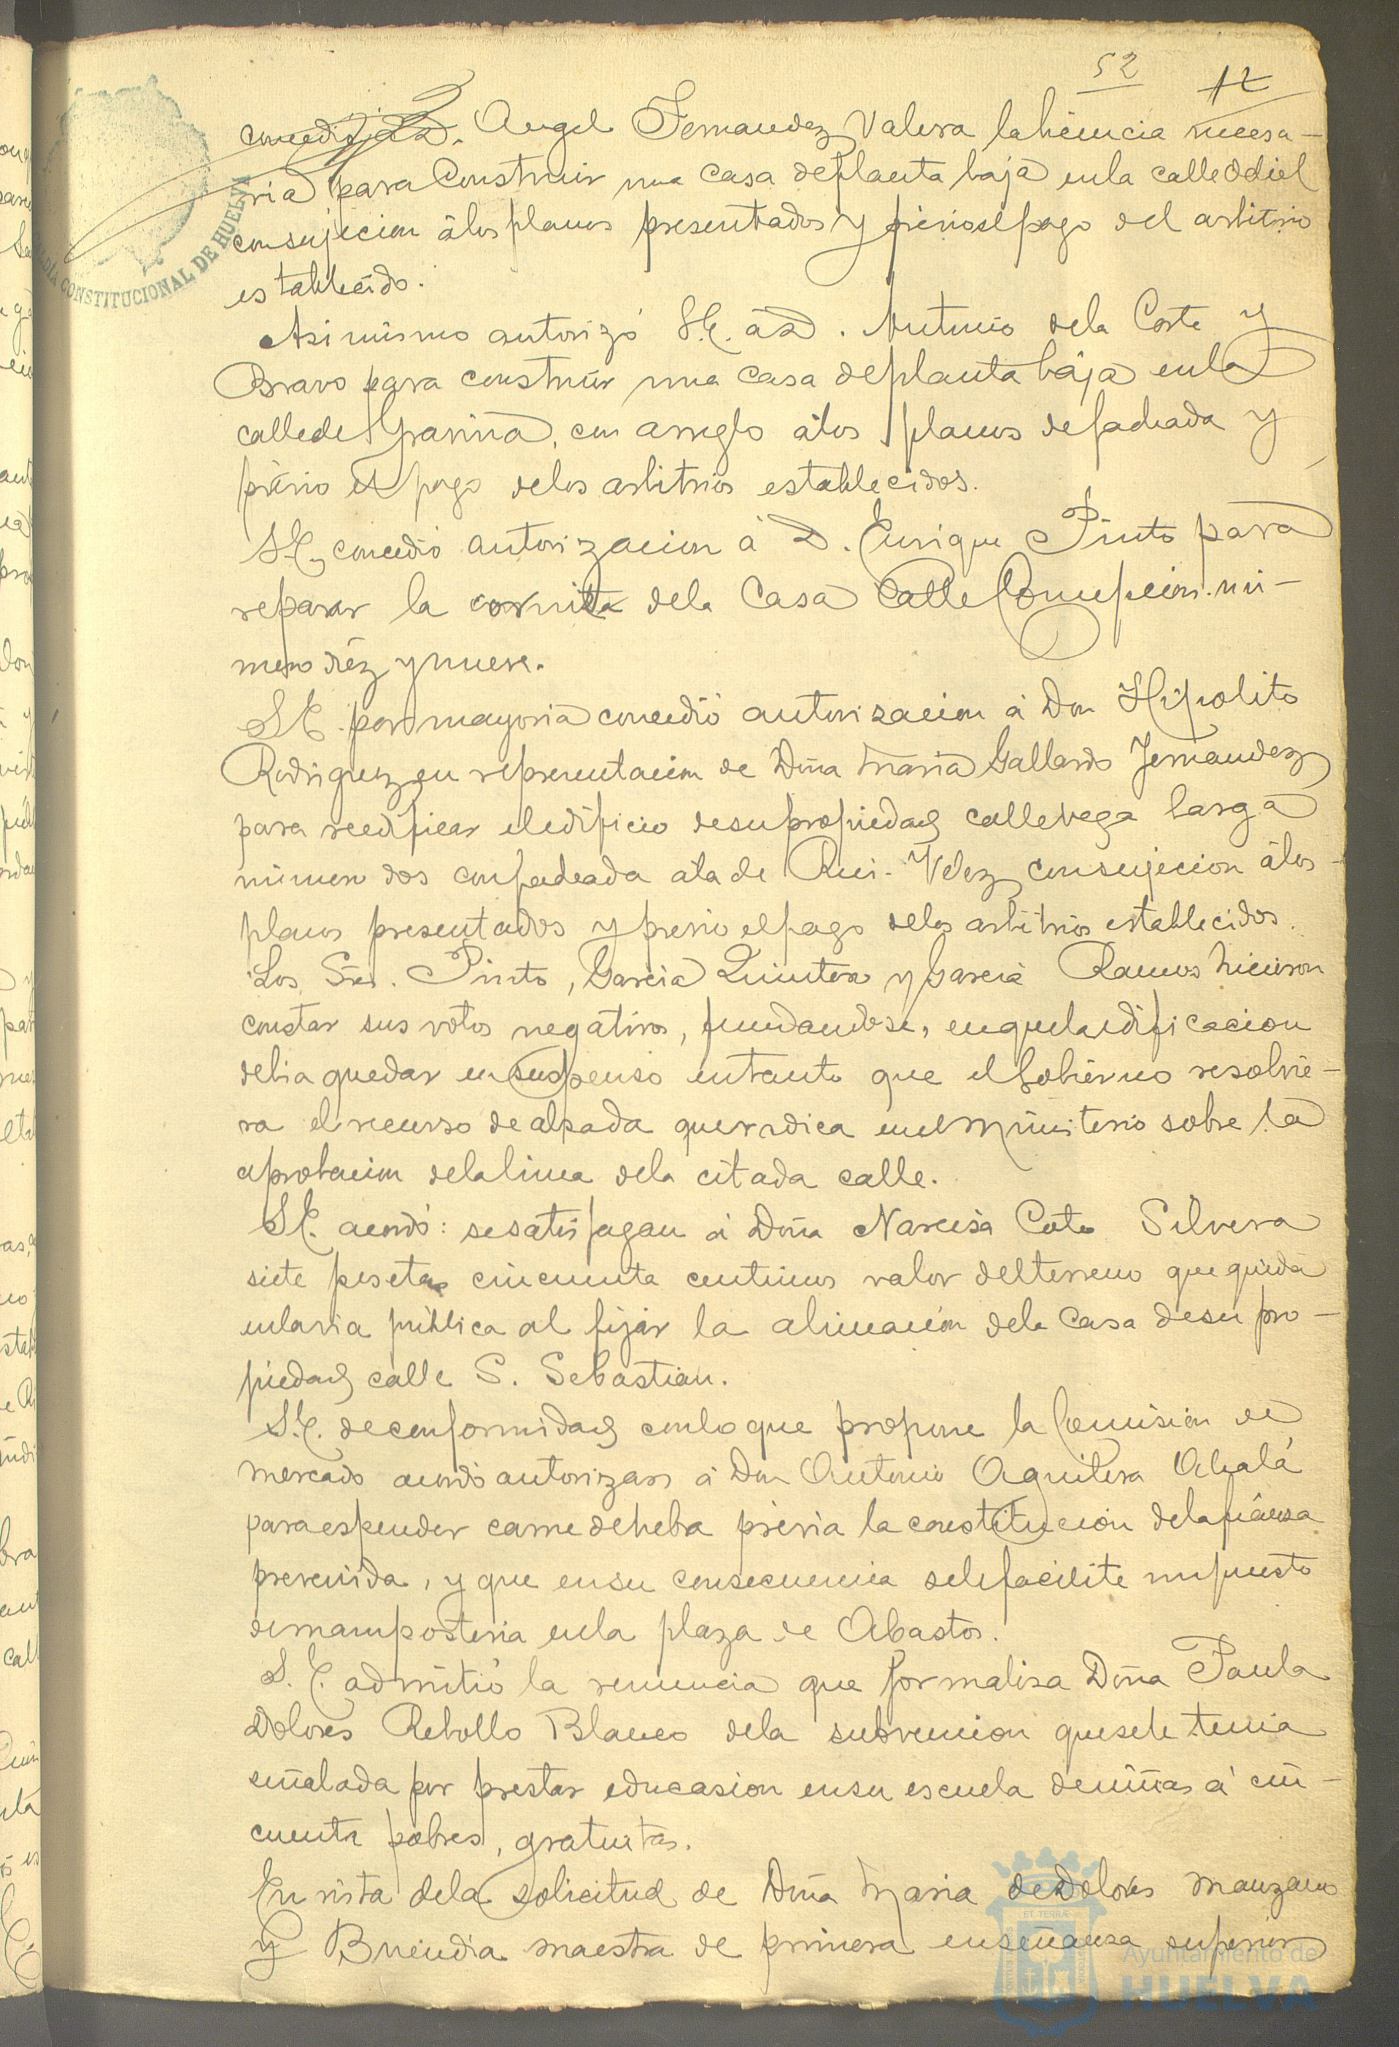 52 12
concedió á D. Angel Fernandez Valera la licencia necesa-
ria para Construir una casa de planta baja en la calle Odiel
con sujecion á los planos presentados y prévio el pago del arbitrio
establecido.
Asi mismo autorizó S.E. á D. Antonio de la Corte y
Bravo para construir una casa de planta baja en la
calle de Gravina, con arreglo á los planos de fachada y
prévio el pago de los arbitrios establecidos.
S.E. concedió autorizacion á D. Enrique Pinto para
reparar la cornisa de la Casa Calle Concepcion nú-
mero diéz y nueve.
S.E. por mayoria concedió autorizacion á Don Hipolito
Rodriguez en representacion de Doña Maria Gallardo Fernandez
para reedificar el edificio de su propiedad calle Vega Larga
número dos con fachada á la de Rui-Velez con sujecion á los
planos presentados y prévio el pago de los arbitrios establecidos.
Los Sres. Pinto, Garcia Quintero y Garcia Ramos hicieron
constar sus votos negativos, fundandose, en que la edificacion
debia quedar en suspenso en tanto que el Gobierno resolvie-
ra el recurso de alzada que radica en el Ministerio sobre la
aprobacion de la linea de la citada calle.
S.E. acordó: se satisfagan á Doña Narcisa Coto Silvera
siete pesetas cincuenta centimos valor del terreno que queda
en la via pública al fijar la alineación de la Casa de su pro-
piedad calle S. Sebastian.
S.E. de conformidad con lo que propone la Comision de
Mercado acordó autorizar á Don Antonio Aguilera Alcalá
para espender carne de hebra prévia la constitucion de la fianza
prevenida, y que en su consecuencia se le facilite un puesto
de mamposteria en la plaza de Abastos.
S.E. admitió la renuncia que formalisa Doña Paula
Dolores Rebollo Blanco de la subvencion que se le tenia
señalada por prestar educasion en su escuela de niñas á cin-
cuenta pobres, gratuitas.
En vista de la solicitud de Doña Maria de Dolores Manzano
y Buendia maestra de primera enseñansa superior
CONSTITUCIONAL DE HUELVA
Ayuntamiento de
HUELVA